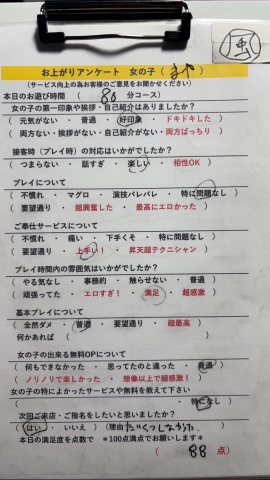 お上がりアンケート 女の子( まや )
(サービス向上の為お客様のご意見をお聞かせください)
本日のお遊び時間 ( 80 分コース)
女の子の第一印象や挨拶・自己紹介はありましたか?
( 元気がない ・ 普通 ・ 好印象 ・ ドキドキした )
( 両方ない・挨拶がない・自己紹介がない・両方ばっちり )
接客時(プレイ時)の対応はいかがでしたか?
( つまらない ・ 話すぎ ・ 楽しい ・ 相性OK )
プレイについて
( 不慣れ ・ マグロ ・ 演技バレバレ ・ 特に問題なし )
( 要望通り ・ 超興奮した ・ 最高にエロかった )
ご奉仕サービスについて
( 不慣れ ・ 痛い ・ 下手くそ ・ 特に問題なし )
( 要望通り ・ 上手い! ・ 昇天超テクニシャン )
プレイ時間内の雰囲気はいかがでしたか?
( やる気なし ・ 事務的 ・ 触らせない ・ 普通 )
( 頑張ってた ・ エロすぎ! ・ 満足 ・ 超感激 )
基本プレイについて
( 全然ダメ ・ 普通 ・ 要望通り ・ 超最高 )
何かあれば ( )
女の子の出来る無料OPについて
( 何もできなかった ・ 思ってたのと違った ・ 普通 )
( ノリノリで楽しかった ・ 想像以上で超感激! )
女の子の特によかったサービスや無料を教えて下さい
( 特になし )
次回ご来店・ご指名をしたいと思いましたか?
( はい ・ いいえ ) (理由 )
本日の満足度を点数で *100点満点でお願いします*
( 88 点)